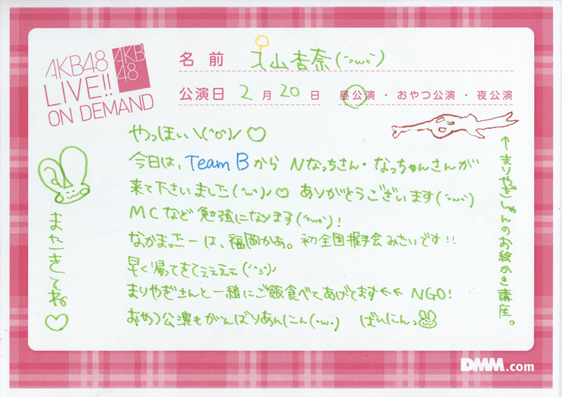 AKB48
LIVE!!
ON DEMAND
AKB
48
名前 入山杏奈(´・ω・`)
公演日 2月20日 昼公演・おやつ公演・夜公演
やっほい\(^o^)/♡
今日は、Team Bから Nなっちさん・なっちゃんさんが
来て下さいました(´・ω・`)♡ ありがとうございます(´・ω・`)
MCなど勉強になります(´・ω・`)!
なかまったーは、福岡かぁ。初全国握手会みたいです!!
早く帰ってきてぇぇぇぇ(´з`)
まりやぎさんと一緒にご飯食べてあげてます<< NGO!
おやつ公演もがんばりあんにん(・ω・) ばいにんっ
またきてね♡
↑まりやぎしゃんのお絵かき講座。
DMM.com